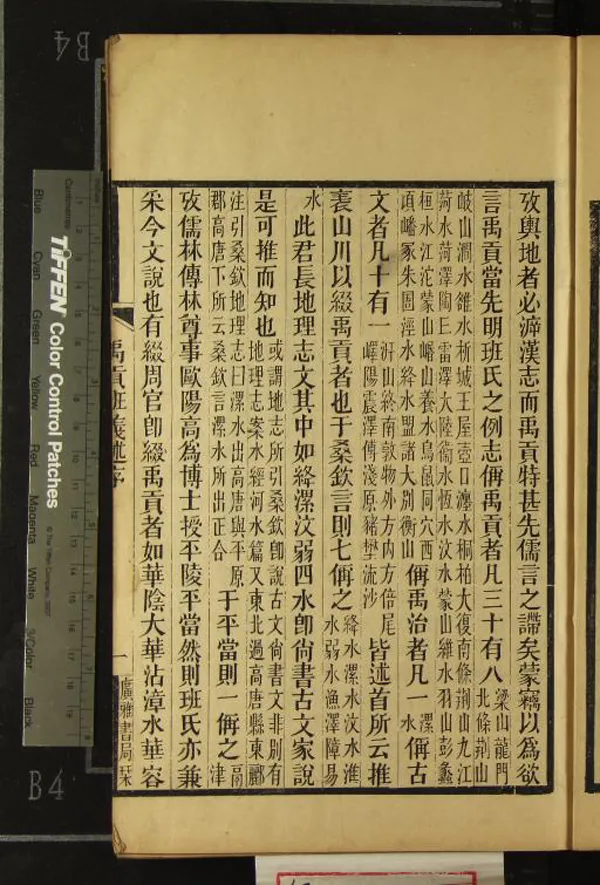 攷輿地者必癖漢志而禹貢特甚先儒言之讆矣蒙竊以爲欲
言禹貢當先明班氏之例志偁禹貢者凡三十有八
梁山龍門
北條荆山
岐山澗水雒水析城王屋壺口瀍水桐柏大復南條荆山九江
菏水菏澤陶丘雷澤大陸衞水恆水汶水蒙山維水羽山彭蠡
桓水江沱蒙山嶓山養水鳥鼠同穴西
頃嶓冢朱圄涇水絳水盟諸大别衡山
偁禹治者凡一
漯
水
偁古
文者凡十有一
汧山終南敦物外方内方倍尾
嶧陽震澤傅淺原豬壄流沙
皆述首所云推
表山川以綴禹貢者也于桑欽言則七偁之
絳水漯水汶水淮
水弱水漁澤障易
水
此君長地理志文其中如絳漯汶弱四水卽尙書古文家說
是可推而知也
或謂地志所引桑欽卽說古文尙書文非别有
地理志案水經河水篇又東北過高唐縣東酈
注引桑欽地理志曰漯水出高唐與平原
郡高唐下所云桑欽言漯水所出正合
于平當則一偁之
鬲
津
攷儒林傳林尊事歐陽高爲博士授平陵平當然則班氏亦兼
采今文說也有綴周官卽綴禹貢者如華陰大華沾漳水華容
禹貢班義述序
一
廣雅書局栞
TIFFEN Color Control Patches
© The Tiffen Company, 2007
Centimetres
Blue
Cyan
Green
Yellow
Red
Magenta
White
3/Color
Black
B4
B4